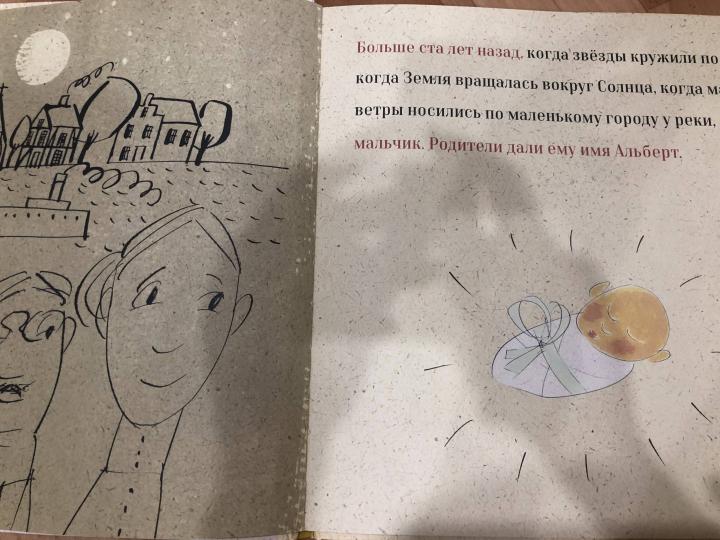 Больше ста лет назад, когда звёзды кружили по
когда Земля вращалась вокруг Солнца, когда
ветры носились по маленькому городу у реки,
мальчик. Родители дали ему имя Альберт.